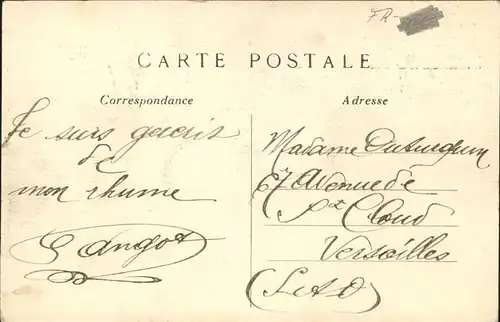 FR-
CARTE POSTALE
Correspondance
Adresse
Je suis guérit
de
mon rhume
G Angot
Madame
67 Avenue de
St Cloud
Versailles
(S et O)